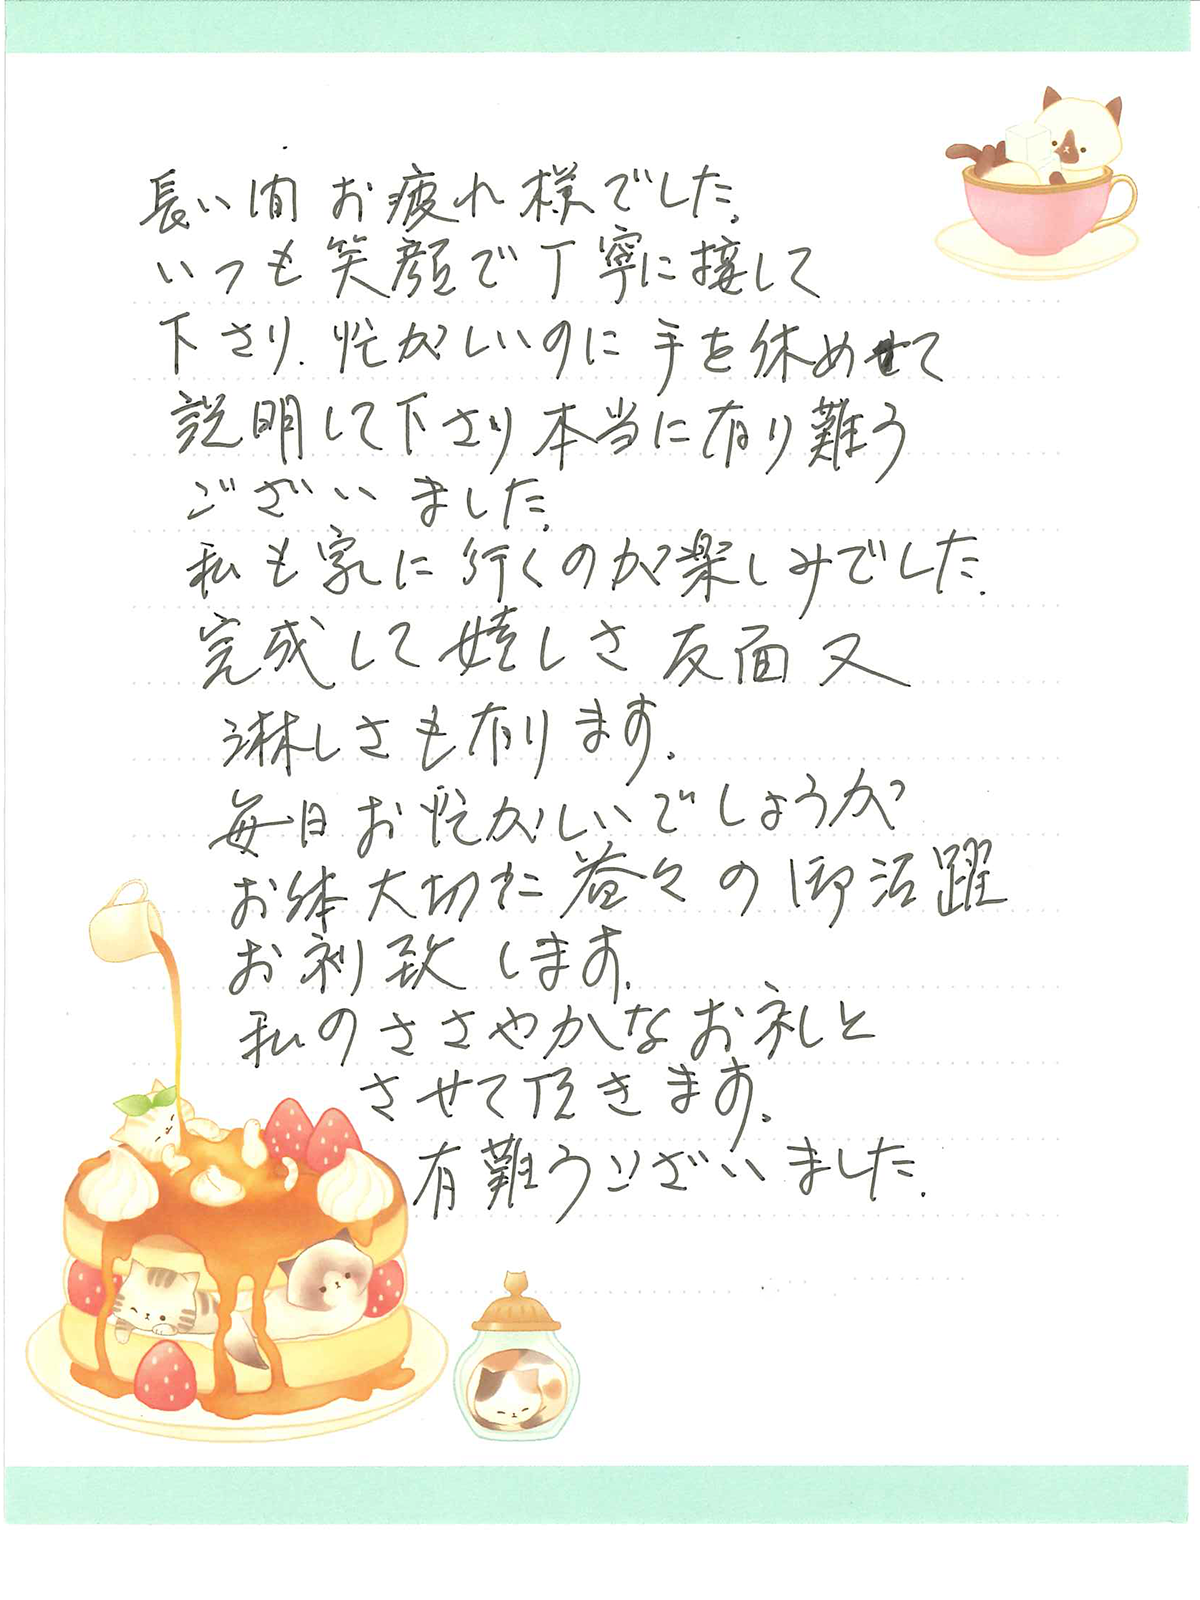 長い間 お疲れ様でした。
いつも笑顔で丁寧に接して
下さり、忙がしいのに手を休めせて
説明して下さり本当に有り難う
ございました。
私も家に行くのが楽しみでした。
完成して嬉しさ 反面 又
淋しさも有ります。
毎日お忙がしいでしょうが
お体大切に益々の御活躍
お祈り致します。
私のささやかなお礼と
させて頂きます。
有難うございました。